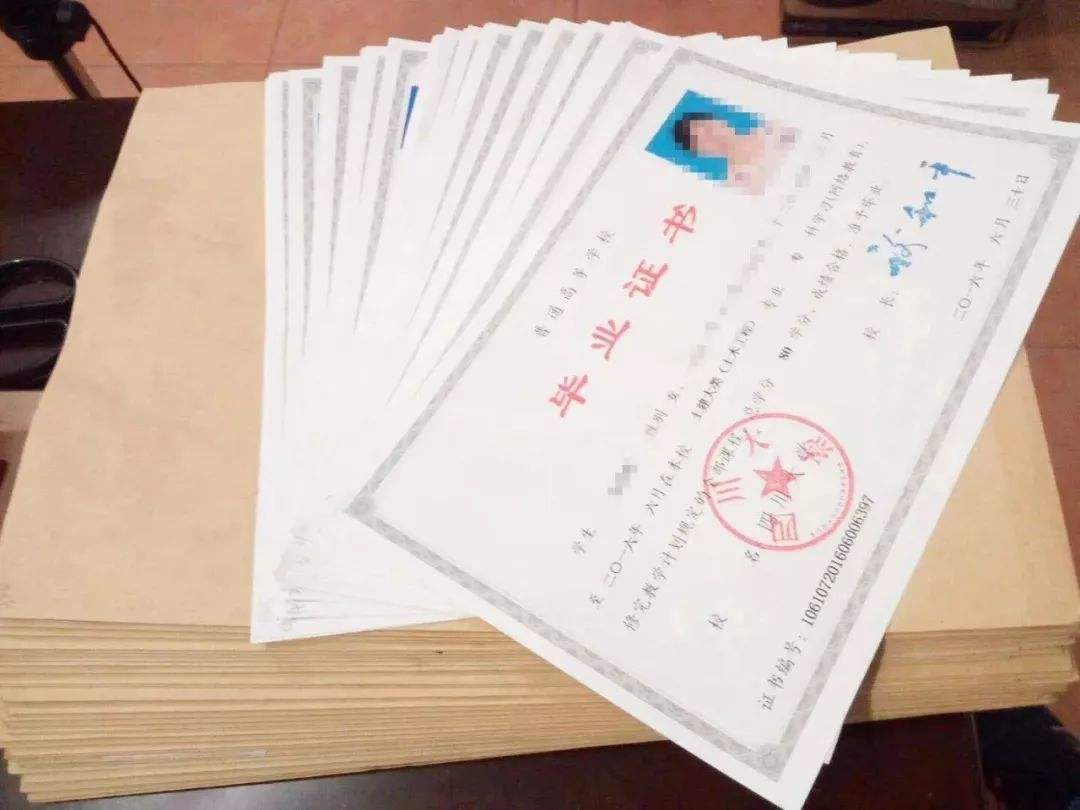 普通高等学校
毕业证书
学生 性别 女,
至 二〇一六年 六月在本校 土建大类(土木工程) 专业 专 科学习(网络教育),
修完教学计划规定的全部课程,总学分 80 学分,成绩合格,准予毕业。
校 名: 四川大学 校 长:
四川大学
证书编号: 106107201606006397 二〇一六年 六月 三十日